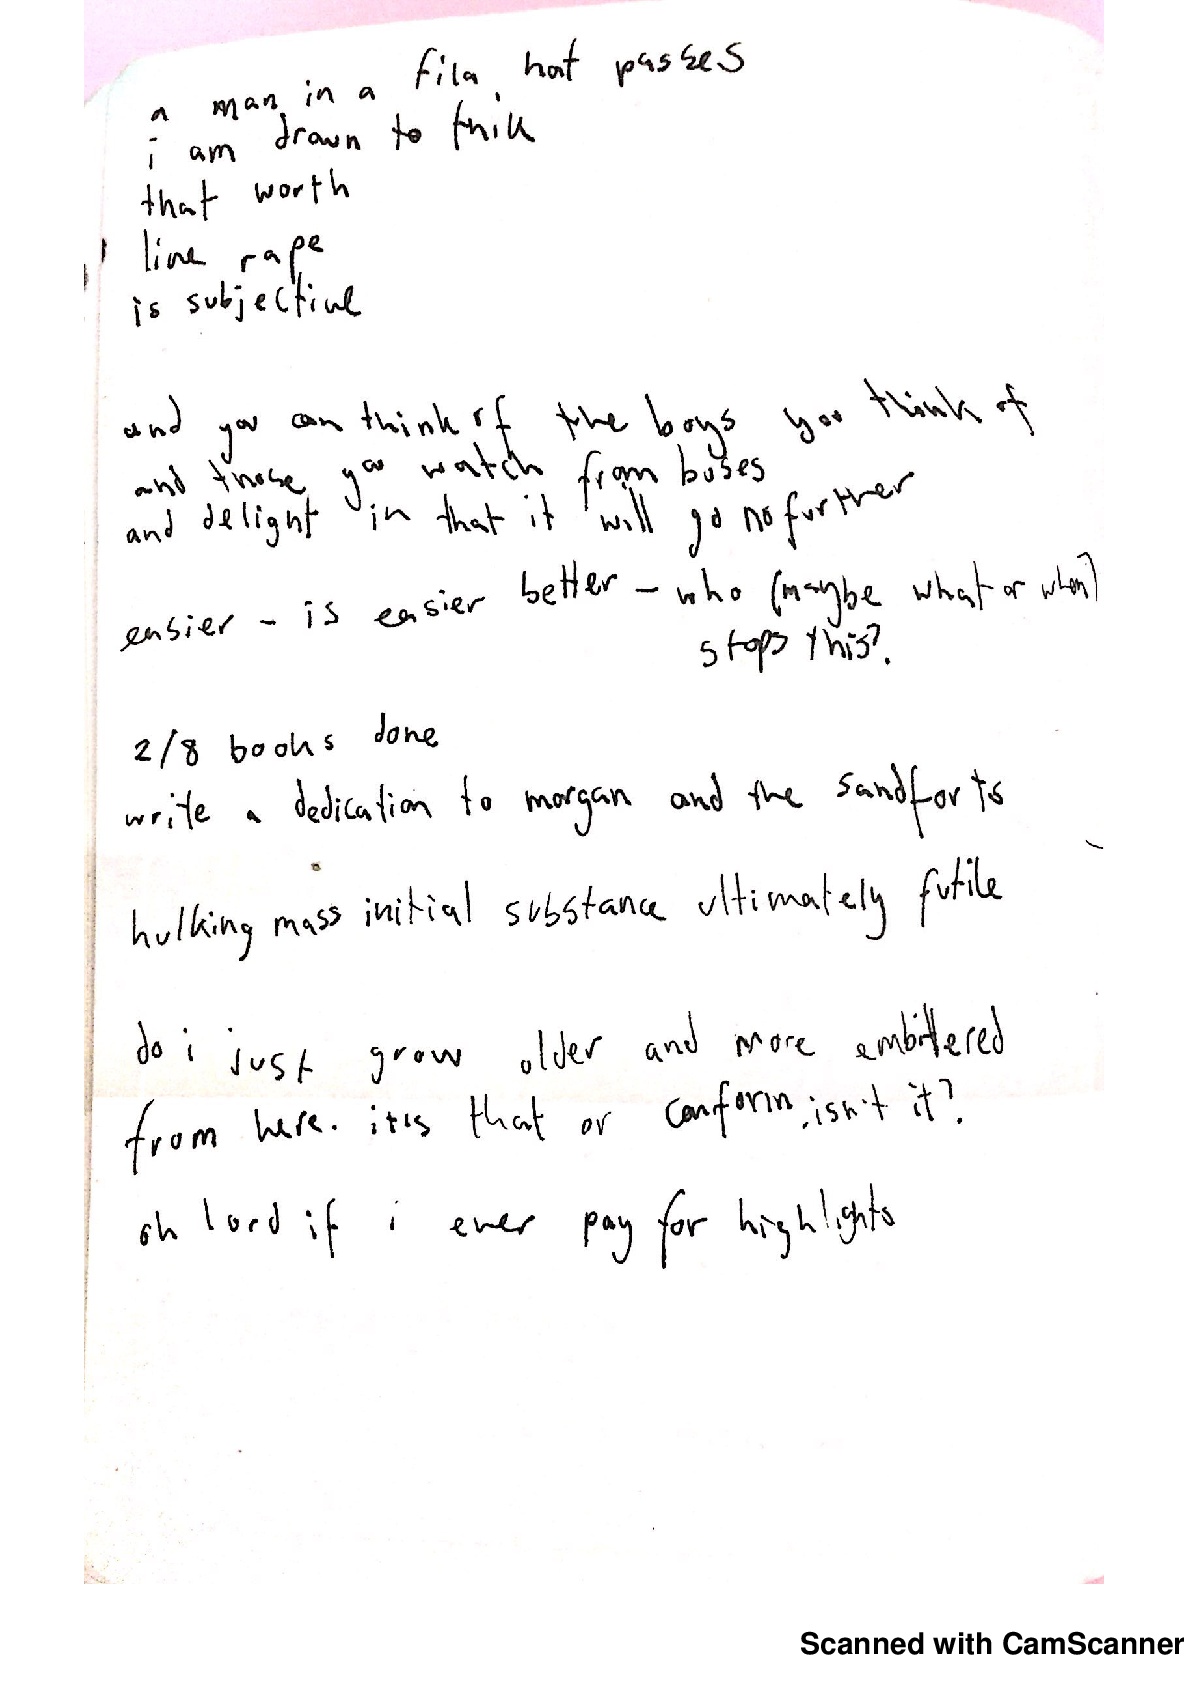 a man in a fila hat passes
i am drawn to thik
that worth
like rape
is subjective
and you can think of the boys you think of
and those you watch from buses
and delight in that it will go no further
easier - is easier better - who (maybe what or when)
stops this?
2/8 books done
write a dedication to morgan and the sandforts
hulking mass initial substance ultimately futile
do i just grow older and more embittered
from here. it is that or conform, isn't it?
oh lord if i ever pay for highlights
Scanned with CamScanner